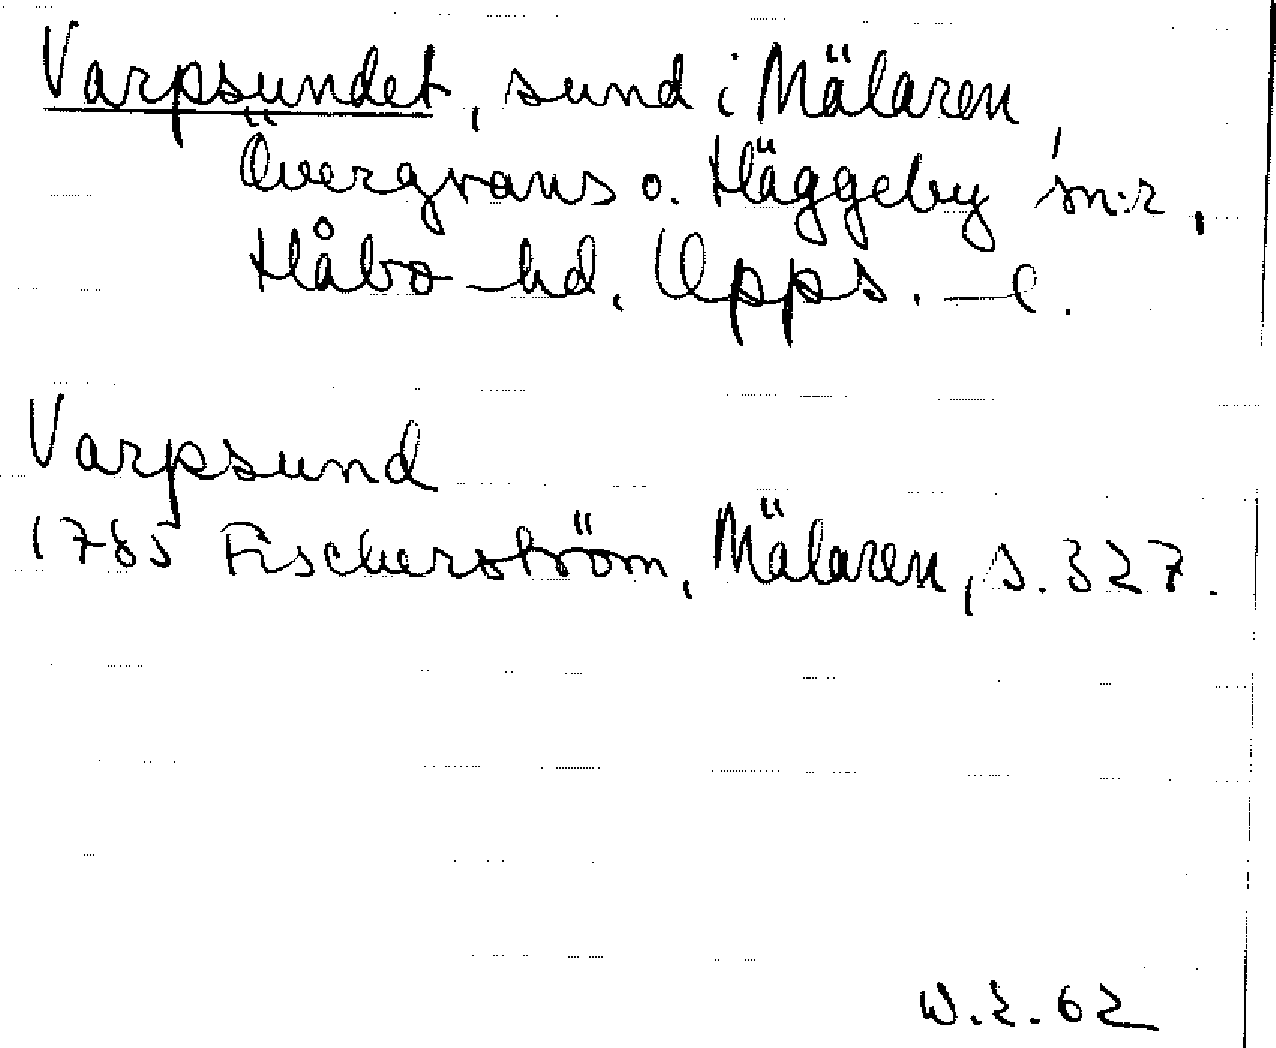 Varpsundet, sund i Mälaren,
Övergrans o. Häggeby sn:r,
Håbo hd, Upps. l.
Varpsund
1785 Fischerström, Mälaren, s. 327.
62